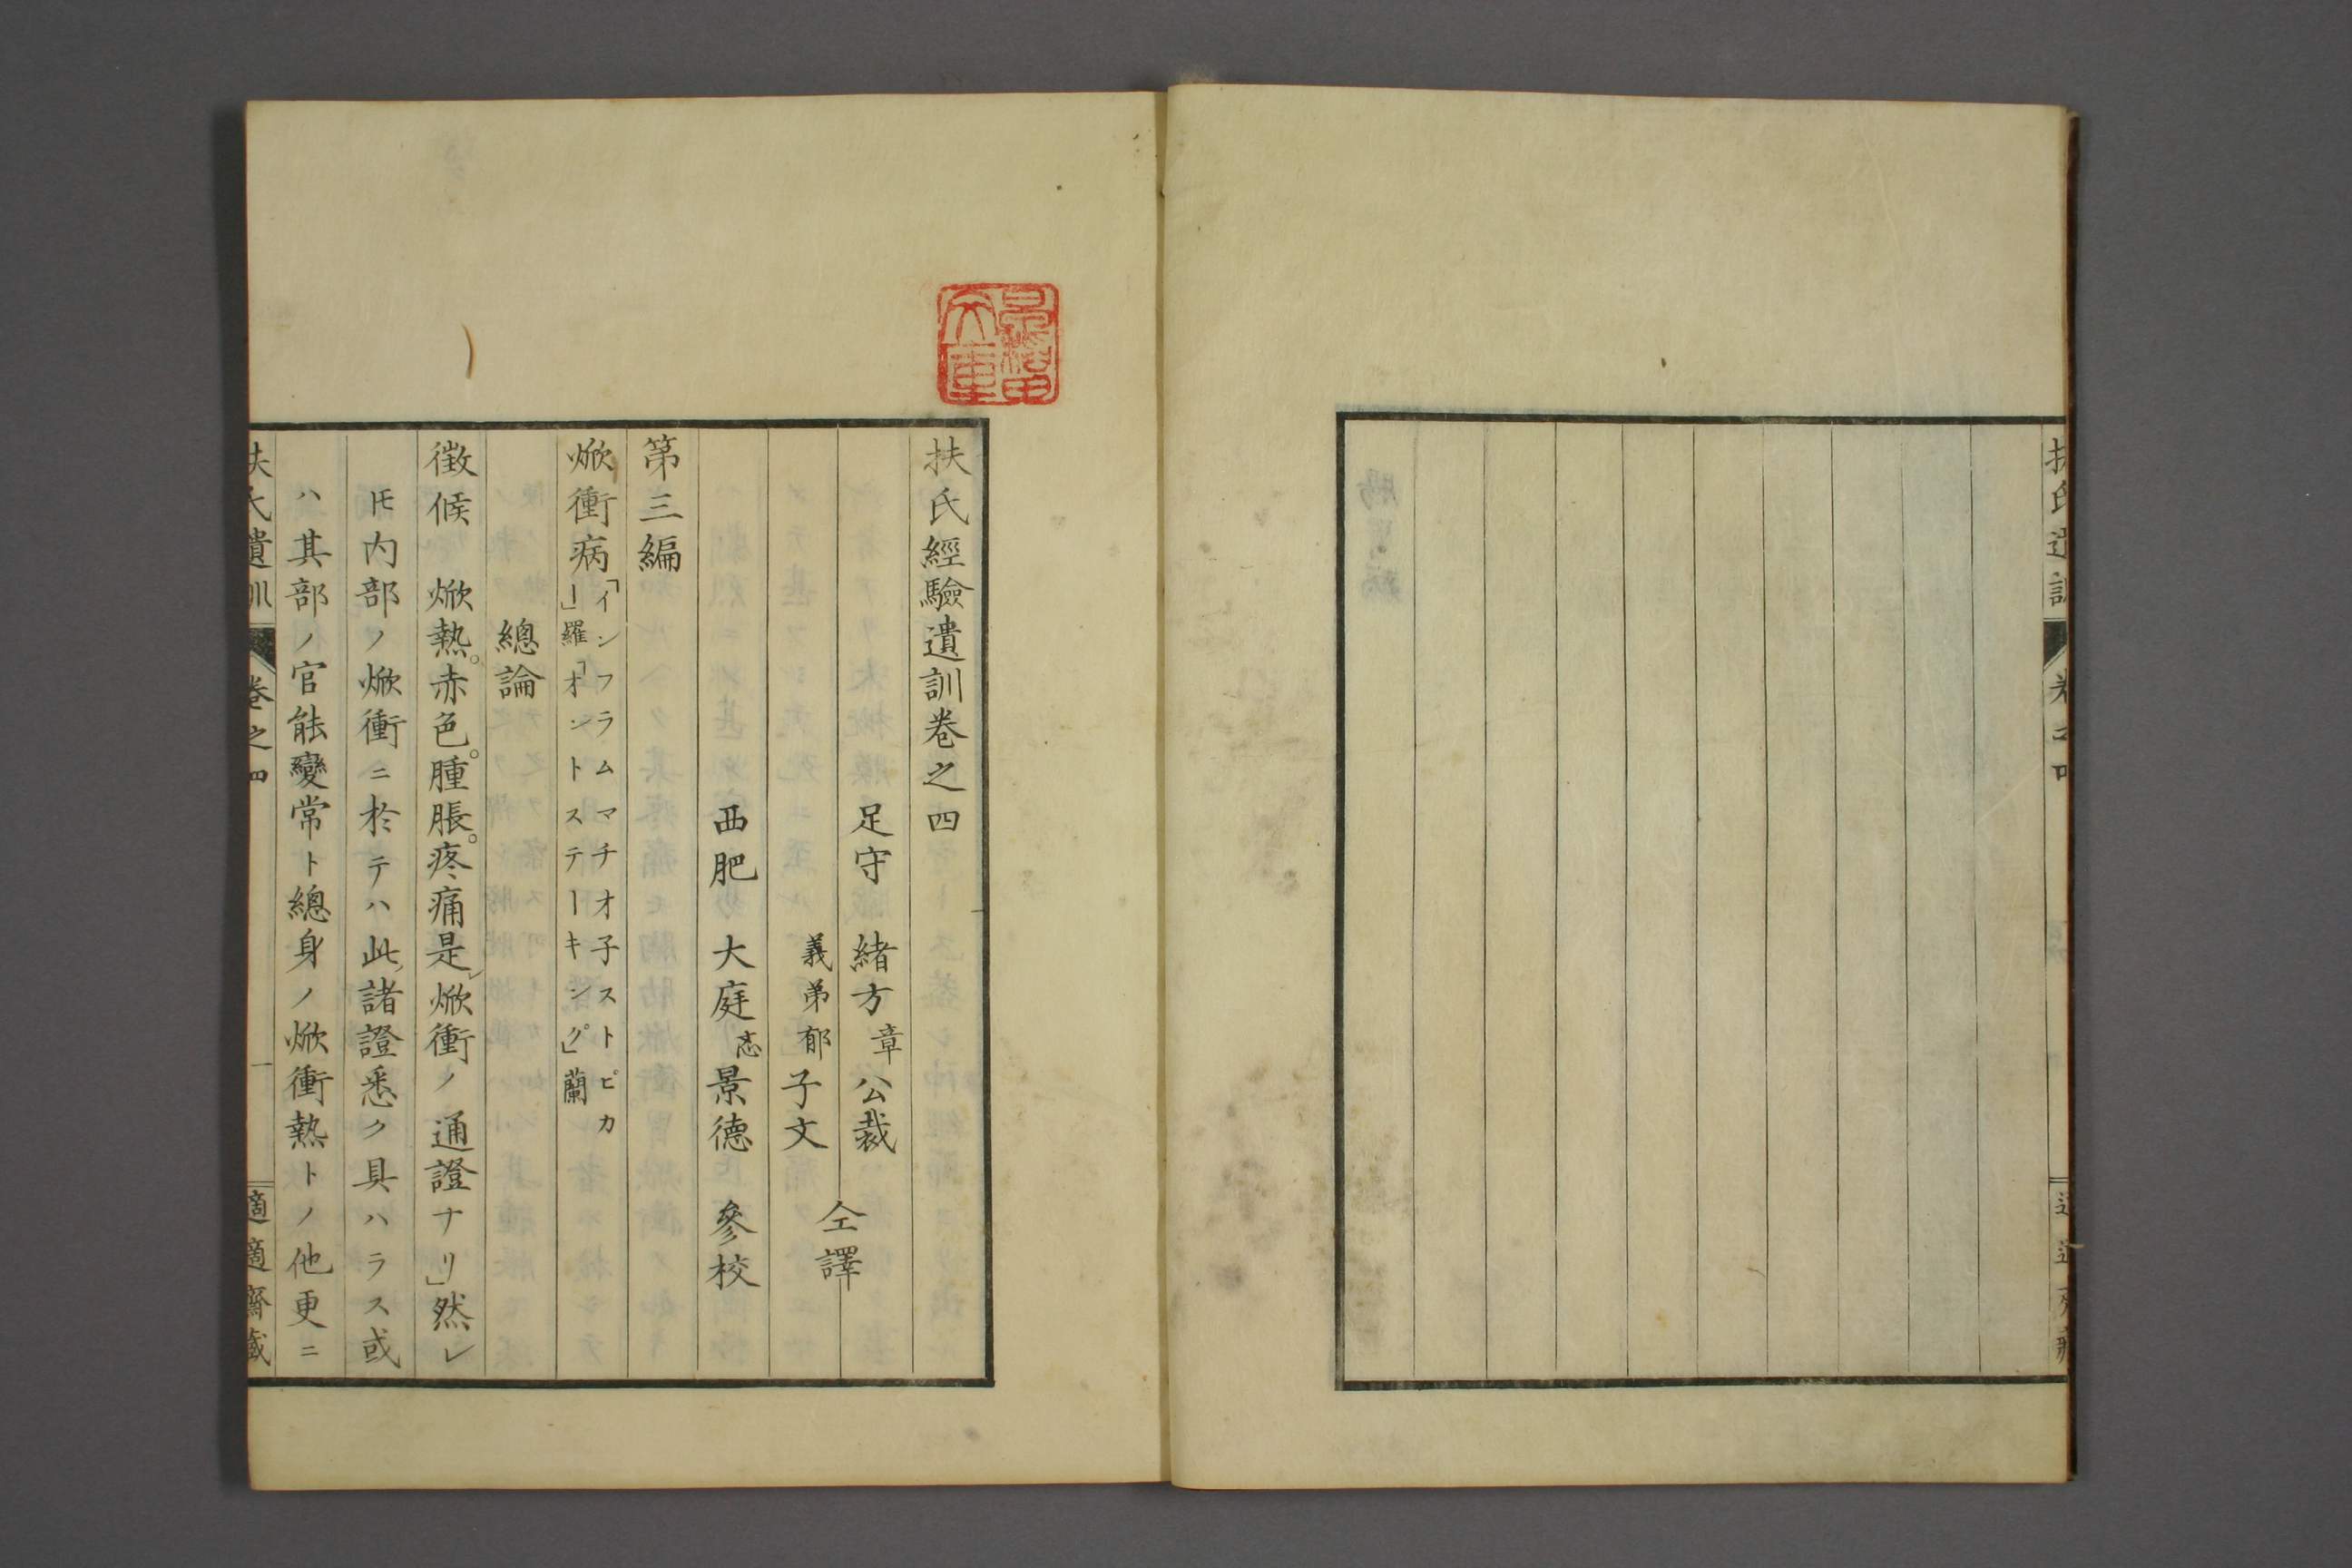 扶氏經驗遺訓卷之四
足守 緒方章公裁
義弟郁子文
仝譯
西肥 大庭忞景德 參校
第三編
焮衝病「インフラムマチオ子ストピカ
ー」羅「オントステーキング」蘭
總論
徴候 焮熱。赤色。腫脹。疼痛是焮衝ノ通證ナリ」然レ
𪜈内部ノ焮衝ニ於テハ此諸證悉ク具ハラス或
ハ其部ノ官能變常ト總身ノ焮衝熱トノ他更ニ
扶氏遺訓 卷之四 一 適適齋藏